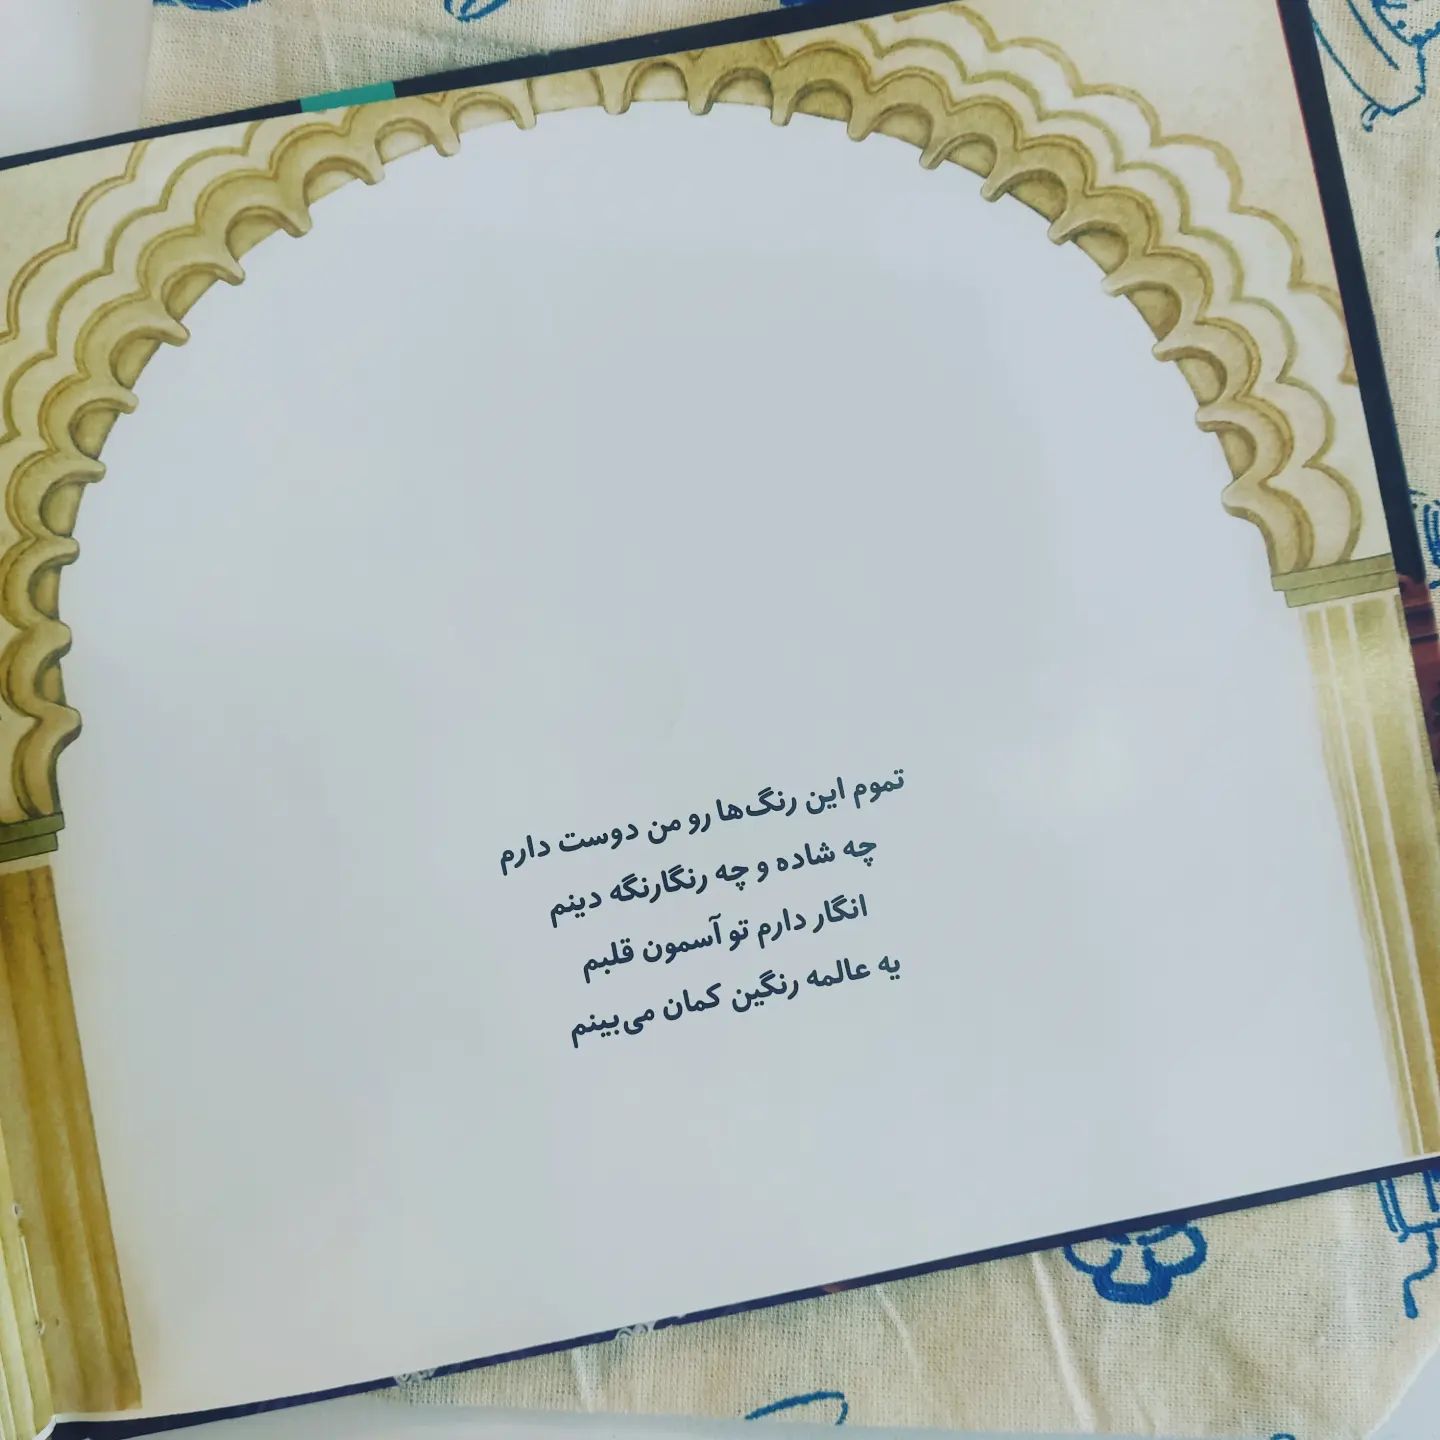 تموم این رنگ‌ها رو من دوست دارم
چه شاده و چه رنگارنگه دینم
انگار دارم تو آسمون قلبم
یه عالمه رنگین کمان می‌بینم